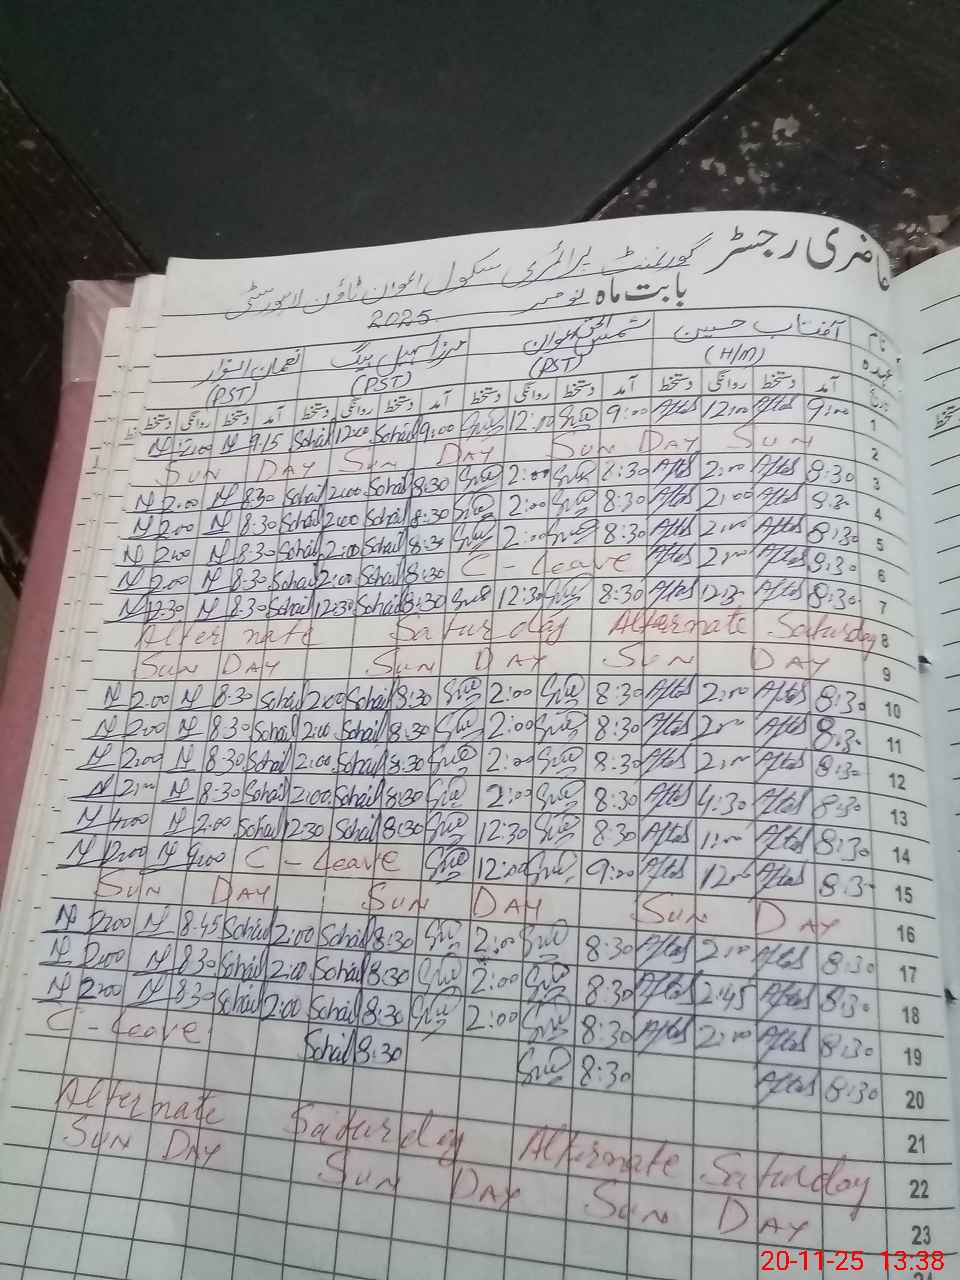 حاضری رجسٹر گورنمنٹ پرائمری سکول اعوان ٹاؤن لاہور سٹی
بابت ماہ نومبر 2025
نام آفتاب حسین شمس الحق اعوان مرزا سہیل بیگ
عہدہ (H/M) (PST) (PST) (PST)
تاریخ آمد دستخط روانگی دستخط آمد دستخط روانگی دستخط آمد دستخط روانگی دستخط آمد دستخط روانگی دستخط
N 12:00 N 9:15 Sohail 12:00 Sohail 9:00 12:00 9:00 Aftab 12:00 Aftab 9:00 1
SUN DAY SUN DAY SUN DAY SUN 2
N 2:00 N 8:30 Sohail 2:00 Sohail 8:30 2:00 8:30 Aftab 2:00 Aftab 8:30 3
N 2:00 N 8:30 Sohail 2:00 Sohail 8:30 2:00 8:30 Aftab 2:00 Aftab 8:30 4
N 2:00 N 8:30 Sohail 2:00 Sohail 8:30 2:00 8:30 Aftab 2:00 Aftab 8:30 5
N 2:00 N 8:30 Sohail 2:00 Sohail 8:30 C - Leave Aftab 2:00 Aftab 8:30 6
N 12:30 N 8:30 Sohail 12:30 Sohail 8:30 12:30 8:30 Aftab 12:30 Aftab 8:30 7
Alternate Saturday Alternate Saturday 8
SUN DAY SUN DAY SUN DAY 9
N 2:00 N 8:30 Sohail 2:00 Sohail 8:30 2:00 8:30 Aftab 2:00 Aftab 8:30 10
N 2:00 N 8:30 Sohail 2:00 Sohail 8:30 2:00 8:30 Aftab 2:00 Aftab 8:30 11
N 2:00 N 8:30 Sohail 2:00 Sohail 8:30 2:00 8:30 Aftab 2:00 Aftab 8:30 12
N 2:00 N 8:30 Sohail 2:00 Sohail 8:30 2:00 8:30 Aftab 4:30 Aftab 8:30 13
N 4:00 N 2:00 Sohail 12:30 Sohail 8:30 12:30 8:30 Aftab 1:00 Aftab 8:30 14
N 12:00 N 9:00 C - Leave 12:00 9:00 Aftab 12:00 Aftab 8:30 15
SUN DAY SUN DAY SUN DAY 16
N 2:00 N 8:45 Sohail 2:00 Sohail 8:30 2:00 8:30 Aftab 2:00 Aftab 8:30 17
N 2:00 N 8:30 Sohail 2:00 Sohail 8:30 2:00 8:30 Aftab 2:45 Aftab 8:30 18
N 2:00 N 8:30 Sohail 2:00 Sohail 8:30 2:00 8:30 Aftab 2:00 Aftab 8:30 19
C - Leave Sohail 8:30 8:30 Aftab 8:30 20
21
Alternate Saturday Alternate Saturday 22
SUN DAY SUN DAY SUN DAY 23
20-11-25 13:38